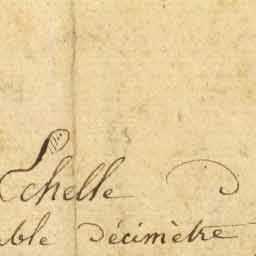 Echelle D
able Décimètre